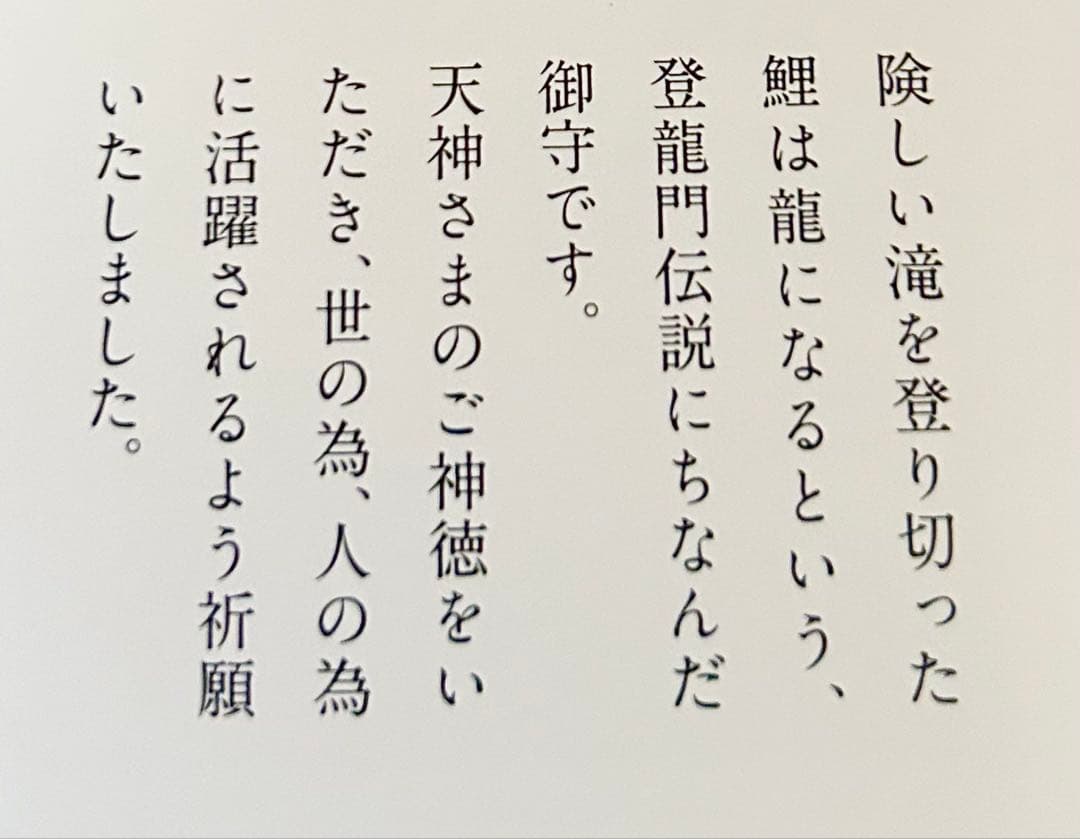 険しい滝を登り切った
鯉は龍になるという、
登龍門伝説にちなんだ
御守です。
天神さまのご神徳をい
ただき、世の為、人の為
に活躍されるよう祈願
いたしました。